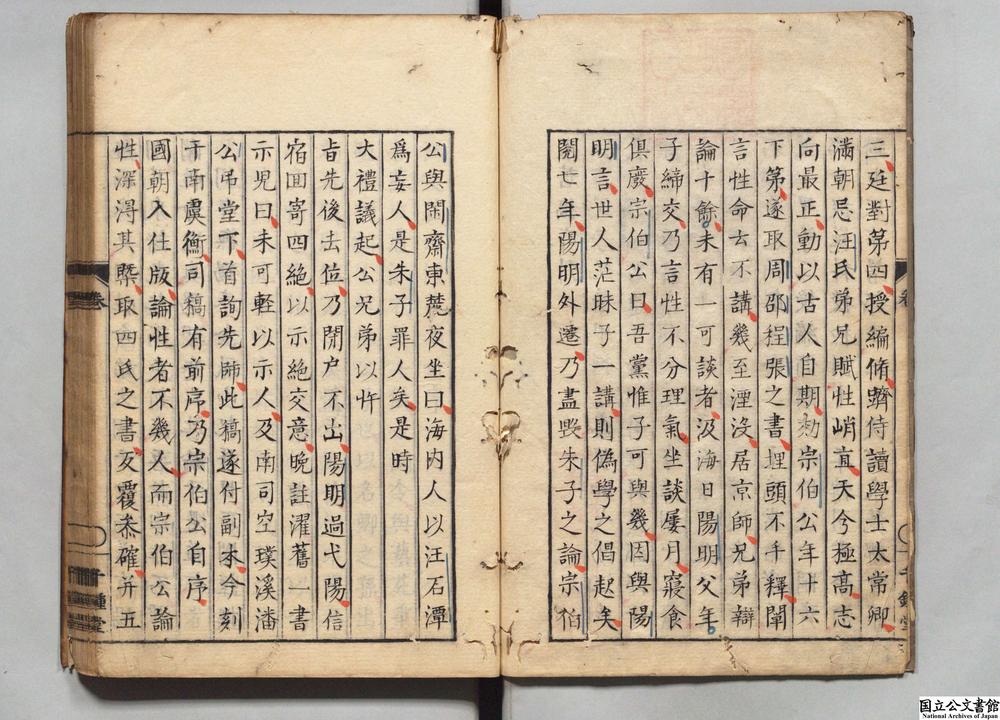 三廷對第四授編脩躋侍讀學士太常卿
滿朝忌汪氏弟兄賦性峭直天今極高志
向最正動以古人自期初宗伯公年十六
下第遂取周邵程張之書埋頭不手釋闡
言性命云不講幾至湮没居京師兄弟辯
論十餘未有一可談者汲海日陽明父年
子締交乃言性不分理氣坐談屢月寢食
俱廢宗伯公曰吾黨惟子可與幾因與陽
明言世人茫昧子一講則偽學之倡起矣
閱世年陽明外遷乃盡毀朱子之論宗伯
公與閒齋東麓夜坐曰海内人以汪石潭
爲妄人是朱子罪人矣是時
大禮議起公兄弟以忤
旨先後去位乃閉户不出陽明過弋陽信
宿囬寄四絶以示絶交意晚註濯舊一書
示児曰未可輕以示人及南司空璞溪潘
公弔堂下首詢先師此稿遂付副本今刻
于南虞衡司稿有前序乃宗伯公自序
國朝入仕版論性者不幾人而宗伯公論
性深淂其槩取四氏之書反覆叅確并五
卷
千鍾堂